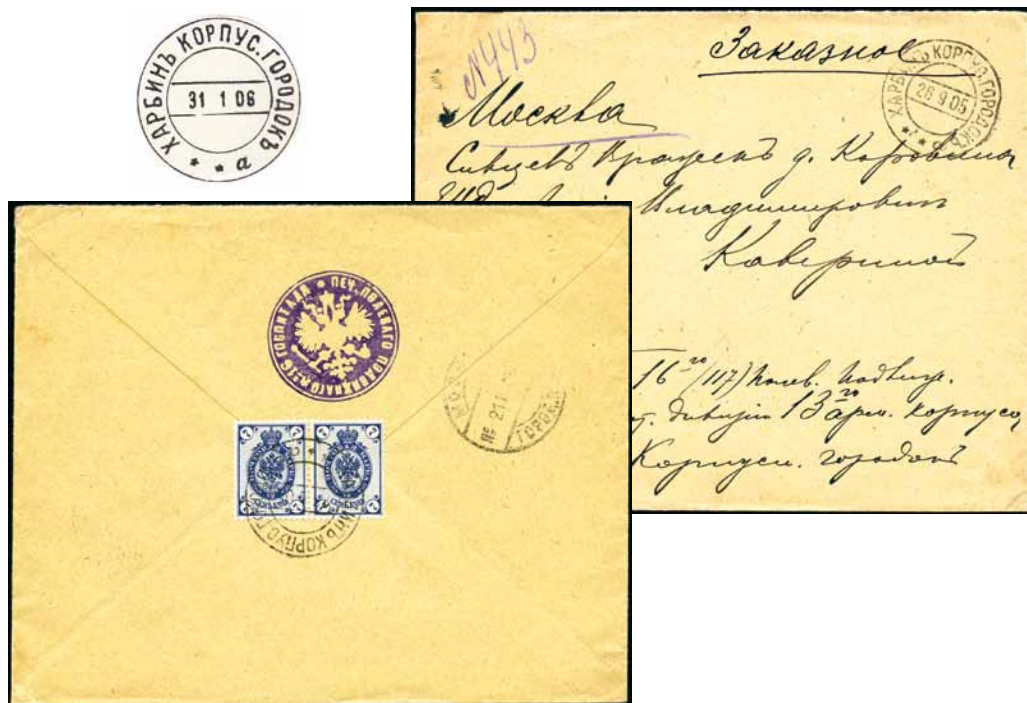 ХАРБИНЪ КОРПУС.ГОРОДОКЪ
31 1 06
* * * а
№443
Заказное
ХАРБИНЪ КОРПУС.ГОРОДОКЪ
26 9 05
Москва
Сивцевъ Вражекъ д. Коровина
Владимирович
Кавериной
16го/(117) полев. подвиж.
дивизіи 13го арм. корпуса
Корпусн. городокъ
ПЕЧ. ПОЛЕВАГО ПОДВИЖНАГО №16 ГОСПИТАЛЯ
7 7
7 7
КОРПУС.ГО
МО
211
ГОРОД